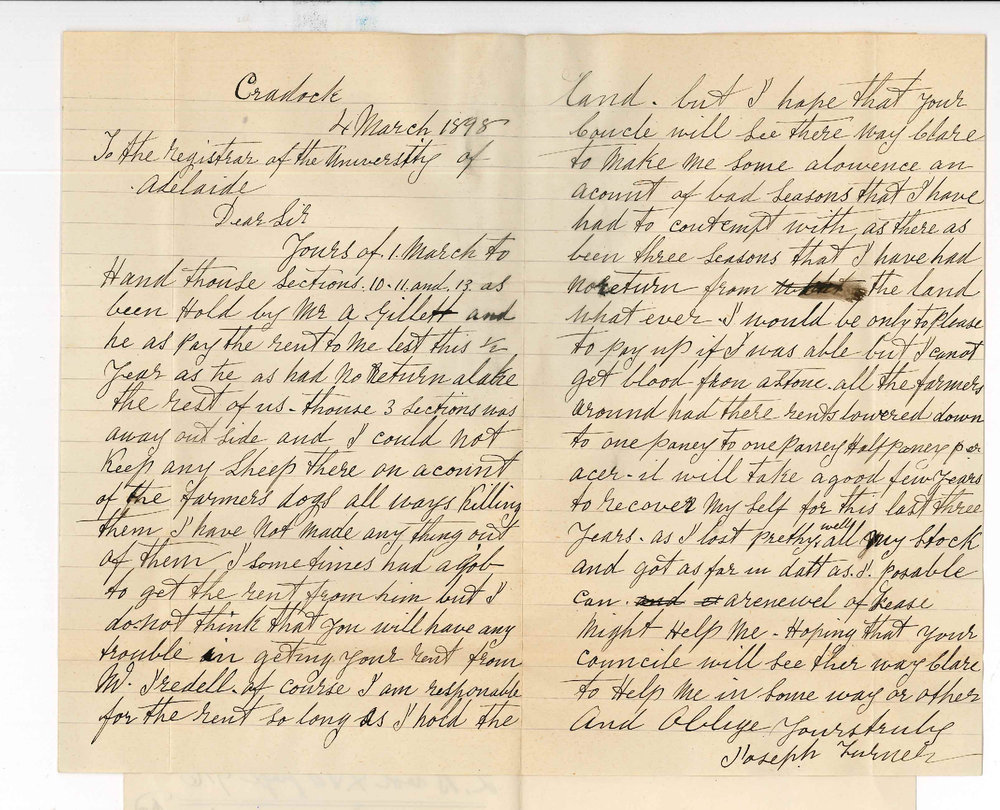 Cradock
4 March 1898
To the registrar of the University of
Adelaide
Dear Sir
Yours of. 1. March to
Hand thouse Sections. 10-11. and. 13 as
been Hold by Mr A Gillett and
he as pay the rent to Me lest this ½
Year as he as had No Return alake
the rest of us - thouse 3 Sections was
away out side and I could Not
Keep any Sheep there on acount
of the farmers dogs all ways Killing
them I have Not Made any thing out
of them, I some times had a Job
to get the rent from him but I
do-not think that you will have any
trouble in geting your rent from
Mr. Iredell. of course I am responable
for the rent so long as I hold the
land - but I hope that your
Councle will see there way Clare
to Make me some alowence an
acount of bad Seasons that I have
had to contempt with, as there as
been three Seasons that I have had
no return from the land
what ever. I would be only to please
to pay up if I was able but I cannot
get blood from a stone. all the farmers
around had there rents lowered down
to one paney to one paney Half paney per
acer - it will take a good few Years
to recover My self for this last three
Years - as I lost prethy well all My Stock
and got as far in datt as. I. posable
Can. and a renewel of Lease
Might Help Me - Hoping that your
Councile will see ther way Clare
to Help Me in some way or other
And Oblige Yourstruly
Joseph Turner